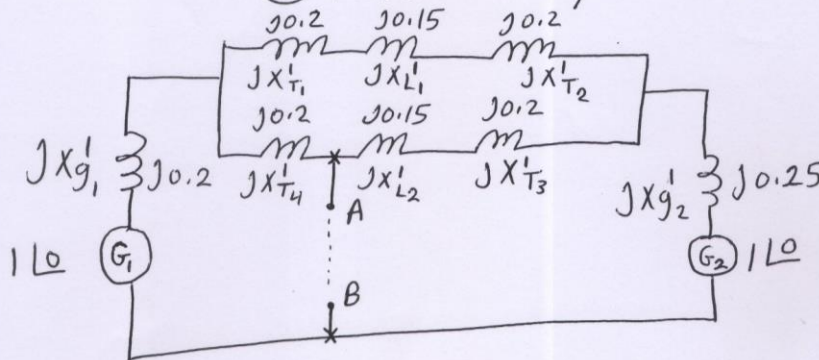 j0.2 j0.15 j0.2
jX'T1 jX'L1 jX'T2
j0.2 j0.15 j0.2
jX'T4 jX'L2 jX'T3
jX'g1 j0.2
jX'g2 j0.25
A
1∠0 G1
G2 1∠0
B